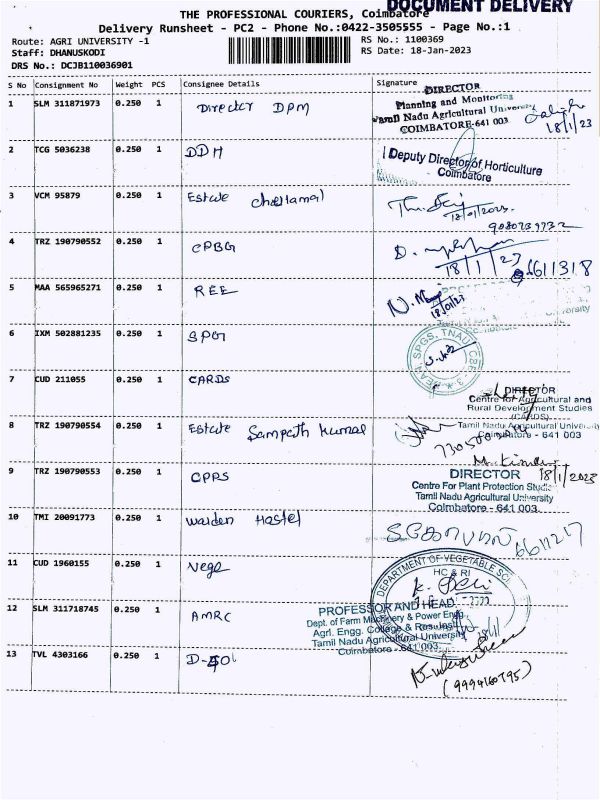 DOCUMENT DELIVERY
THE PROFESSIONAL COURIERS, Coimbatore
Delivery Runsheet - PC2 - Phone No.:0422-3505555 - Page No.:1
Route: AGRI UNIVERSITY -1
RS No.: 1100369
Staff: DHANUSKODI
RS Date: 18-Jan-2023
DRS No.: DCJB110036901
S No Consignment No Weight PCS Consignee Details Signature
1 SLM 311871973 0.250 1 Director DPM
DIRECTOR
Planning and Monitoring
Tamil Nadu Agricultural University
COIMBATORE-641 003
18/1/23
2 TCG 5036238 0.250 1 DDH
Deputy Director of Horticulture
Coimbatore
3 VCM 95879 0.250 1 Estate Chellamal
18/01/2023
9080239732
4 TRZ 190790552 0.250 1 CPBG
18/1/23
6611318
5 MAA 565965271 0.250 1 REE
18/01/23
6 IXM 502881235 0.250 1 SPGI
SPGS, TNAU, CBE-3
7 CUD 211055 0.250 1 CARDS
DIRECTOR
Centre for Agricultural and
Rural Development Studies
(CARDS)
Tamil Nadu Agricultural University
Coimbatore - 641 003
8 TRZ 190790554 0.250 1 Estate Sampath Kumar
9 TRZ 190790553 0.250 1 CPPS
18/1/2023
DIRECTOR
Centre For Plant Protection Studies
Tamil Nadu Agricultural University
Coimbatore - 641 003.
10 TMI 20091773 0.250 1 Warden Hostel
6611217
11 CUD 1960155 0.250 1 Vege
DEPARTMENT OF VEGETABLE SCI
HC & RI
12 SLM 311718745 0.250 1 AMRC
PROFESSOR AND HEAD
Dept. of Farm Machinery & Power Engg.
Agrl. Engg. College & Res. Inst.
Tamil Nadu Agricultural University
Coimbatore - 641 003.
13 TVL 4303166 0.250 1
(9994160795)